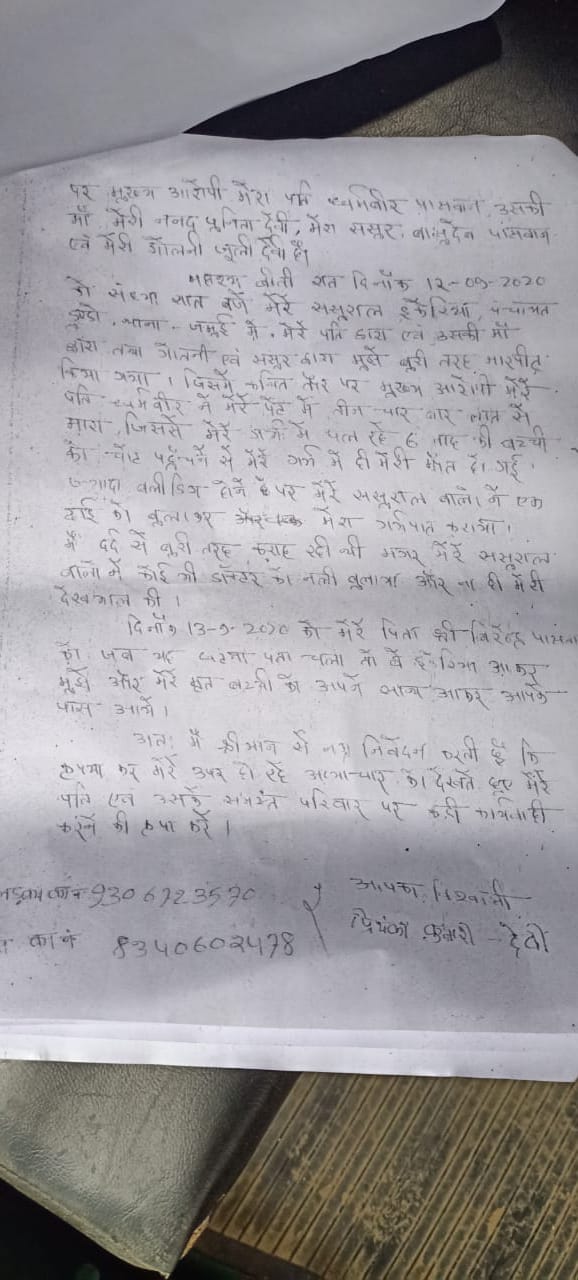 पर मुख्य आरोपी मेरा पति धर्मवीर पासवान, उसकी
माँ मेरी ननद पुनिता देवी, मेरा ससुर, वासुदेव पासवान
एवं मेरी गोतनी जुली देवी है।
महाशय बीती रात दिनाँक 12-09-2020
को संध्या सात बजे मेरे ससुराल पंचायत
थाना - जमुई में, मेरे पति द्वारा एवं उसकी माँ
द्वारा तथा गोतनी एवं ससुर द्वारा मुझे बुरी तरह मारपीट
किया गया। जिसमें कथित तौर पर मुख्य आरोपी मेरे
पति धर्मवीर ने मेरे पेट में तीन-चार बार लात से
मारा, जिससे मेरे गर्भ में पल रहे 6 माह की बच्ची
को चोट पहुँचने से मेरे गर्भ में ही मेरी मौत हो गई।
ज्यादा बलीडिंग होने पर मेरे ससुराल वालों ने एक
दाई को बुलाकर मेरा गर्भपात कराया।
मैं दर्द से बुरी तरह कराह रही थी मगर मेरे ससुराल
वालों में कोई भी डॉक्टर को नही बुलाया और ना ही मेरी
देखभाल की।
दिनाँक 13-9-2020 को मेरे पिता श्री विरेन्द्र पासवान
को जब यह घटना पता चला तो वे आकर
मुझे और मेरे मृत बच्ची को अपने साथ आकर आपके
पास आये।
अतः मैं श्रीमान से नम्र निवेदन करती हूँ कि
कृपया कर मेरे उपर हो रहे अत्याचार को देखते हुए मेरे
पति एवं उसके समस्त परिवार पर कड़ी कार्यवाही
करने की कृपा करें।
9306723570 आपका विश्वासी
8340602478 प्रियंका कुमारी - देवी